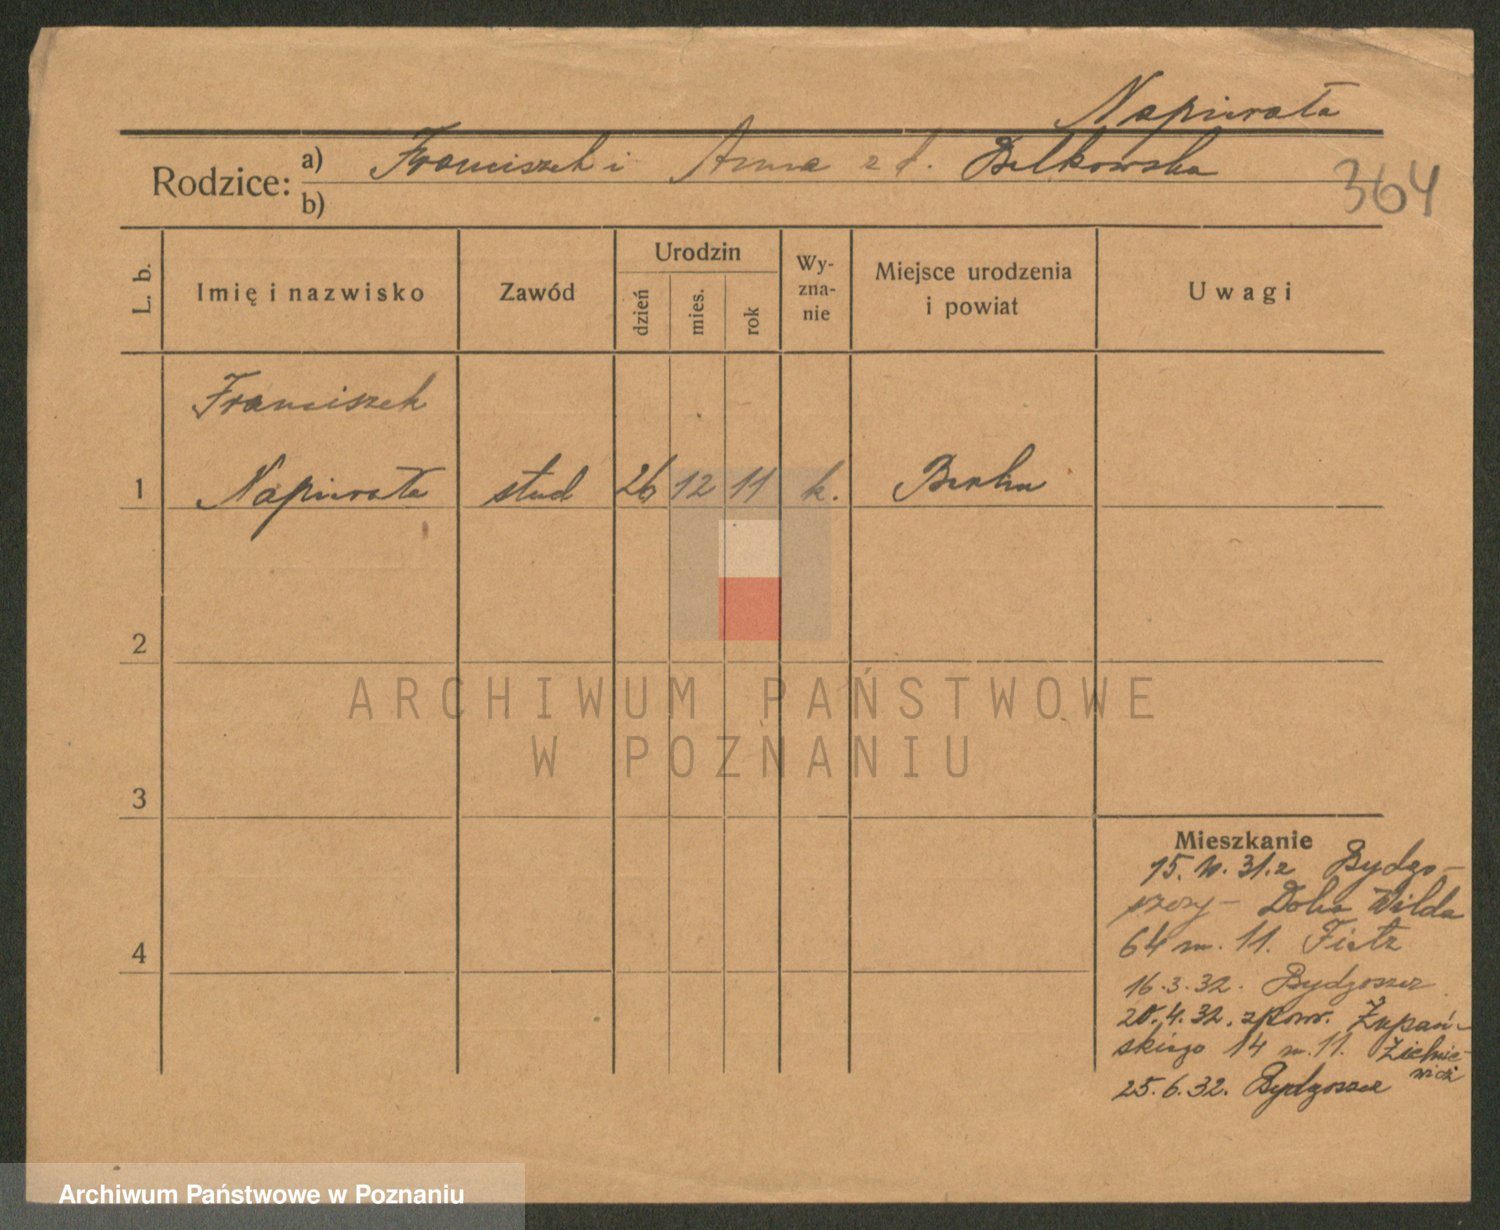 Napierała
Rodzice: a) Franciszek i Anna z d. Belkowska
b)
364
L. b.
Imię i nazwisko
Zawód
Urodzin
dzień
mies.
rok
Wy-
zna-
nie
Miejsce urodzenia
i powiat
Uwagi
Franciszek
1 Napierała stud 26 12 11 k. Berlin
2
ARCHIWUM PAŃSTWOWE
W POZNANIU
3
4
Mieszkanie
15. 10. 31. z Bydgo-
szczy- Dolna Wilda
64 m. 11. Fietz
16.3.32. Bydgoszcz
20.4.32. zpow. Żupań-
skiego 14 m. 11.
25.6.32. Bydgoszcz
Archiwum Państwowe w Poznaniu